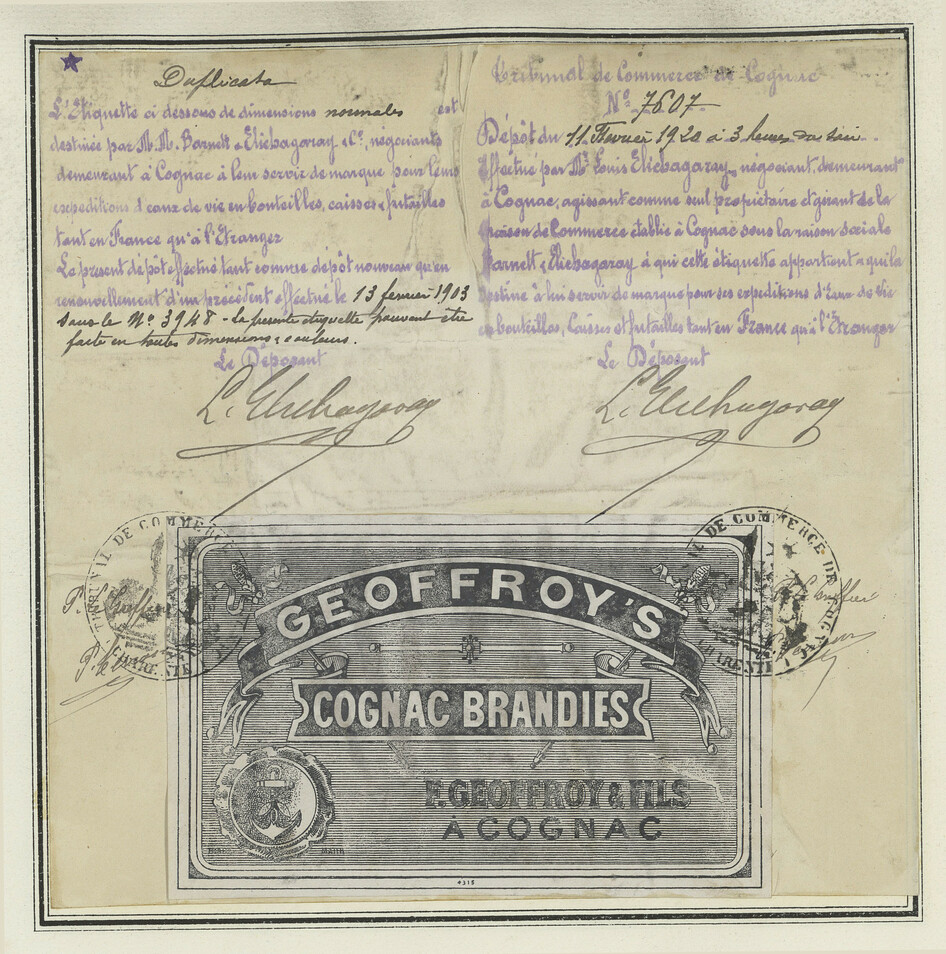 Duplicata
L'Etiquette ci dessous de dimensions normales est
destinée par M.M. Barnett & Elichagaray & Cie, négociants
demeurant à Cognac à leur service de marque pour leurs
expéditions d'eaux de vie en bouteilles, caisses & futailles
tant en France qu'à l'Etranger
Le présent dépôt effectué tant comme dépôt nouveau qu'en
renouvellement d'un précédent effectué le 13 fevrier 1903
sous le No 3948 - La presente etiquette pouvant etre
faite en toutes dimensions & couleurs.
Le Déposant
L. Elichagaray
Tribunal de Commerce de Cognac
No 7607
Dépôt du 11 Fevrier 1920 à 3 heures du soir
Effectué par Mr Louis Elichagaray, négociant, demeurant
à Cognac, agissant comme seul propriétaire et gérant de la
maison de Commerce établie à Cognac sous la raison sociale
Barnett & Elichagaray à qui cette étiquette appartient & qui la
destine à lui servir de marque pour ses expéditions d'Eaux de Vie
en bouteilles, Caisses et futailles tant en France qu'à l'Etranger
Le Déposant
L. Elichagaray
TRIBUNAL DE COMMERCE
CHARENTE
TRIBUNAL DE COMMERCE DE COGNAC
CHARENTE
GEOFFROY'S
COGNAC BRANDIES
F. GEOFFROY & FILS
À COGNAC